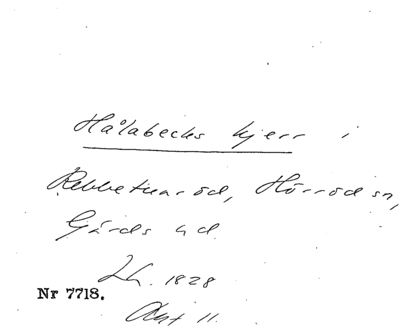 Hålabecks kjerr i
Rebbetuaröd, Hörröd sn,
Gärds hd.
Lh. 1828
Nr 7718.
Akt 11.